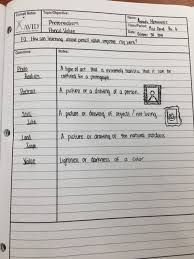 Cornell Notes
Topic/Objective:
Name:
AVID
Pencil Value
EQ: How can learning about pencil value improve my
Questions:
Notes:
Photo
Realism
A type of art that is extremely realistic that it can be
confused for a photograph.
Portrait
A picture or a drawing of a person.
Still
Life
A picture or drawing of objects / not living.
Land
Scape
A picture or drawing of the natural
Value
Lightness or darkness of a color.